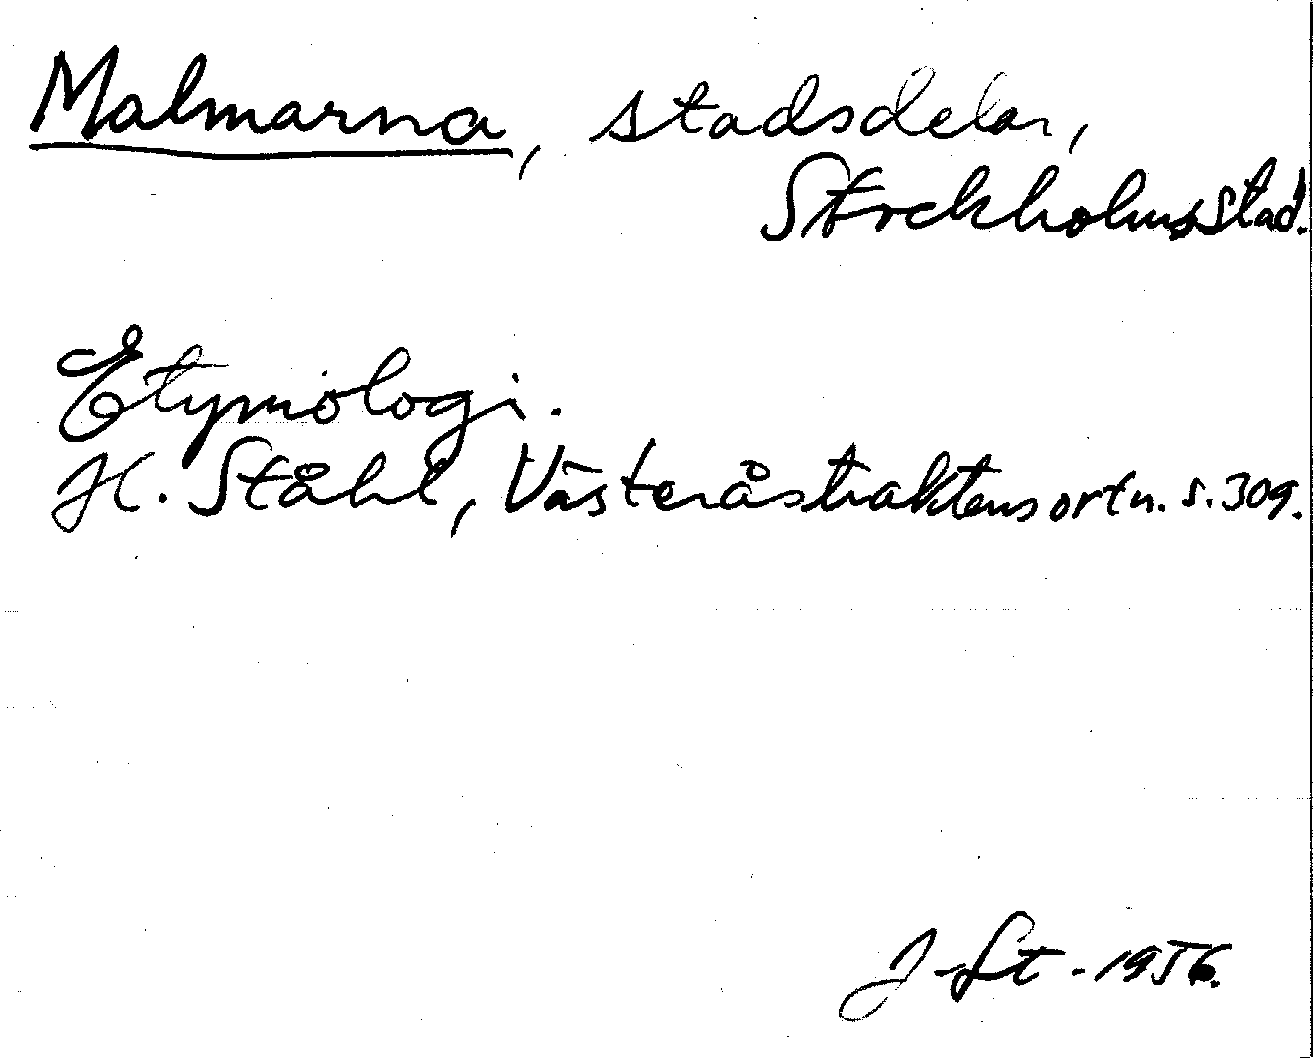 Malmarna, stadsdelar,
Stockholms stad.
Etymologi.
H. Ståhl, Västeråstraktens ortn. s. 309.
J-St-1956.